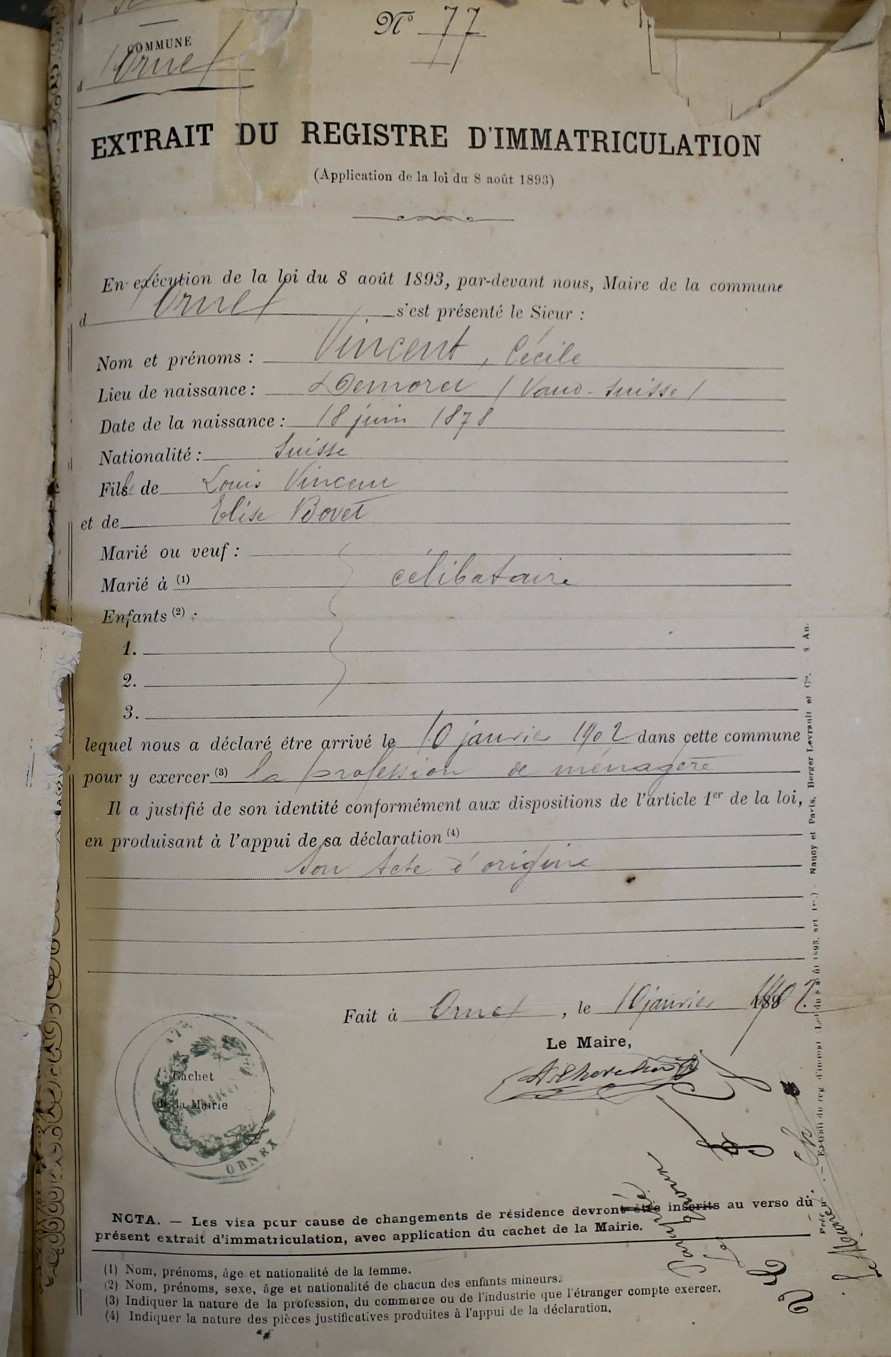 N° 77
COMMUNE
d'Ornex
EXTRAIT DU REGISTRE D'IMMATRICULATION
(Application de la loi du 8 août 1893)
En exécution de la loi du 8 août 1893, par-devant nous, Maire de la commune
d'Ornex s'est présenté le Sieur :
Nom et prénoms : Vincent, Cécile
Lieu de naissance : (Vaud-Suisse)
Date de la naissance : 18 juin 1878
Nationalité : Suisse
Fille de Louis Vincent
et de Elise Bovet
Marié ou veuf :
Marié à (1) célibataire
Enfants (2) :
1.
2.
3.
lequel nous a déclaré être arrivé le 10 janvier 1902 dans cette commune
pour y exercer (3) la profession de ménagère
Il a justifié de son identité conformément aux dispositions de l'article 1er de la loi,
en produisant à l'appui de sa déclaration (4)
son acte d'origine
Fait à Ornex, le 10 janvier 1902
Le Maire,
Cachet
de la Mairie
MAIRIE
ORNEX
NOTA. — Les visa pour cause de changements de résidence devront être inscrits au verso du
présent extrait d'immatriculation, avec application du cachet de la Mairie.
(1) Nom, prénoms, âge et nationalité de la femme.
(2) Nom, prénoms, sexe, âge et nationalité de chacun des enfants mineurs.
(3) Indiquer la nature de la profession, du commerce ou de l'industrie que l'étranger compte exercer.
(4) Indiquer la nature des pièces justificatives produites à l'appui de la déclaration.
Nancy et Paris, Berger-Levrault et Cie.